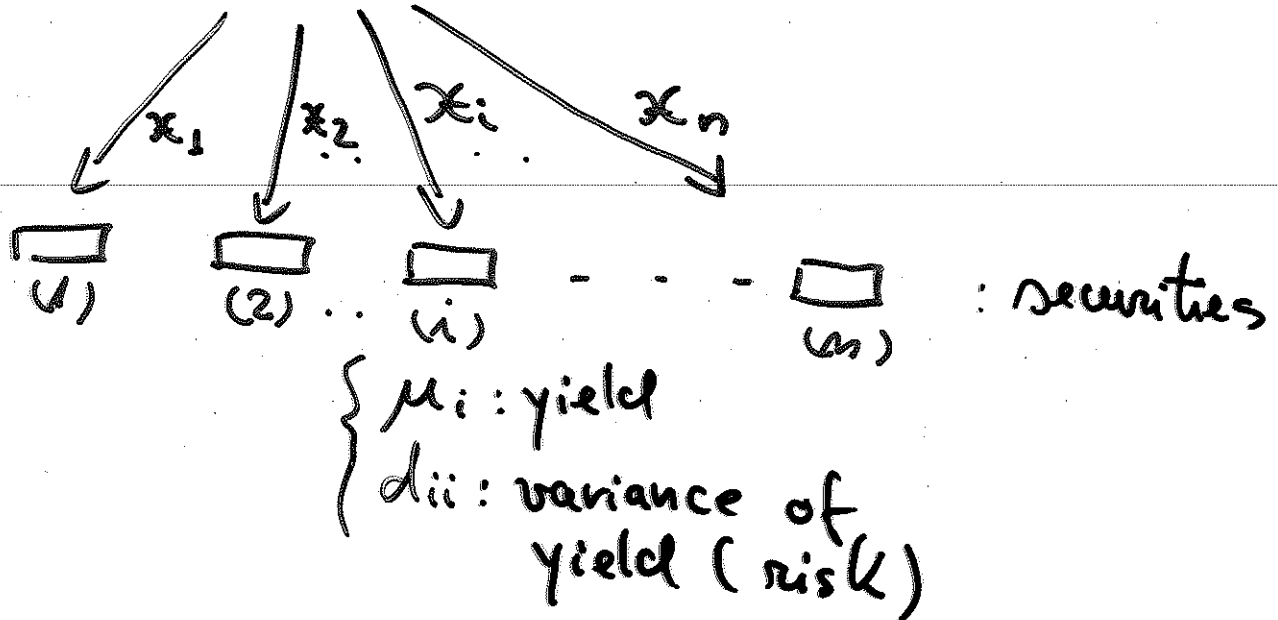 x₁ x₂ .. xᵢ . . xₙ
(1) (2) .. (i) - - - (n) : securities
{ μᵢ : yield
dᵢᵢ : variance of
yield (risk)